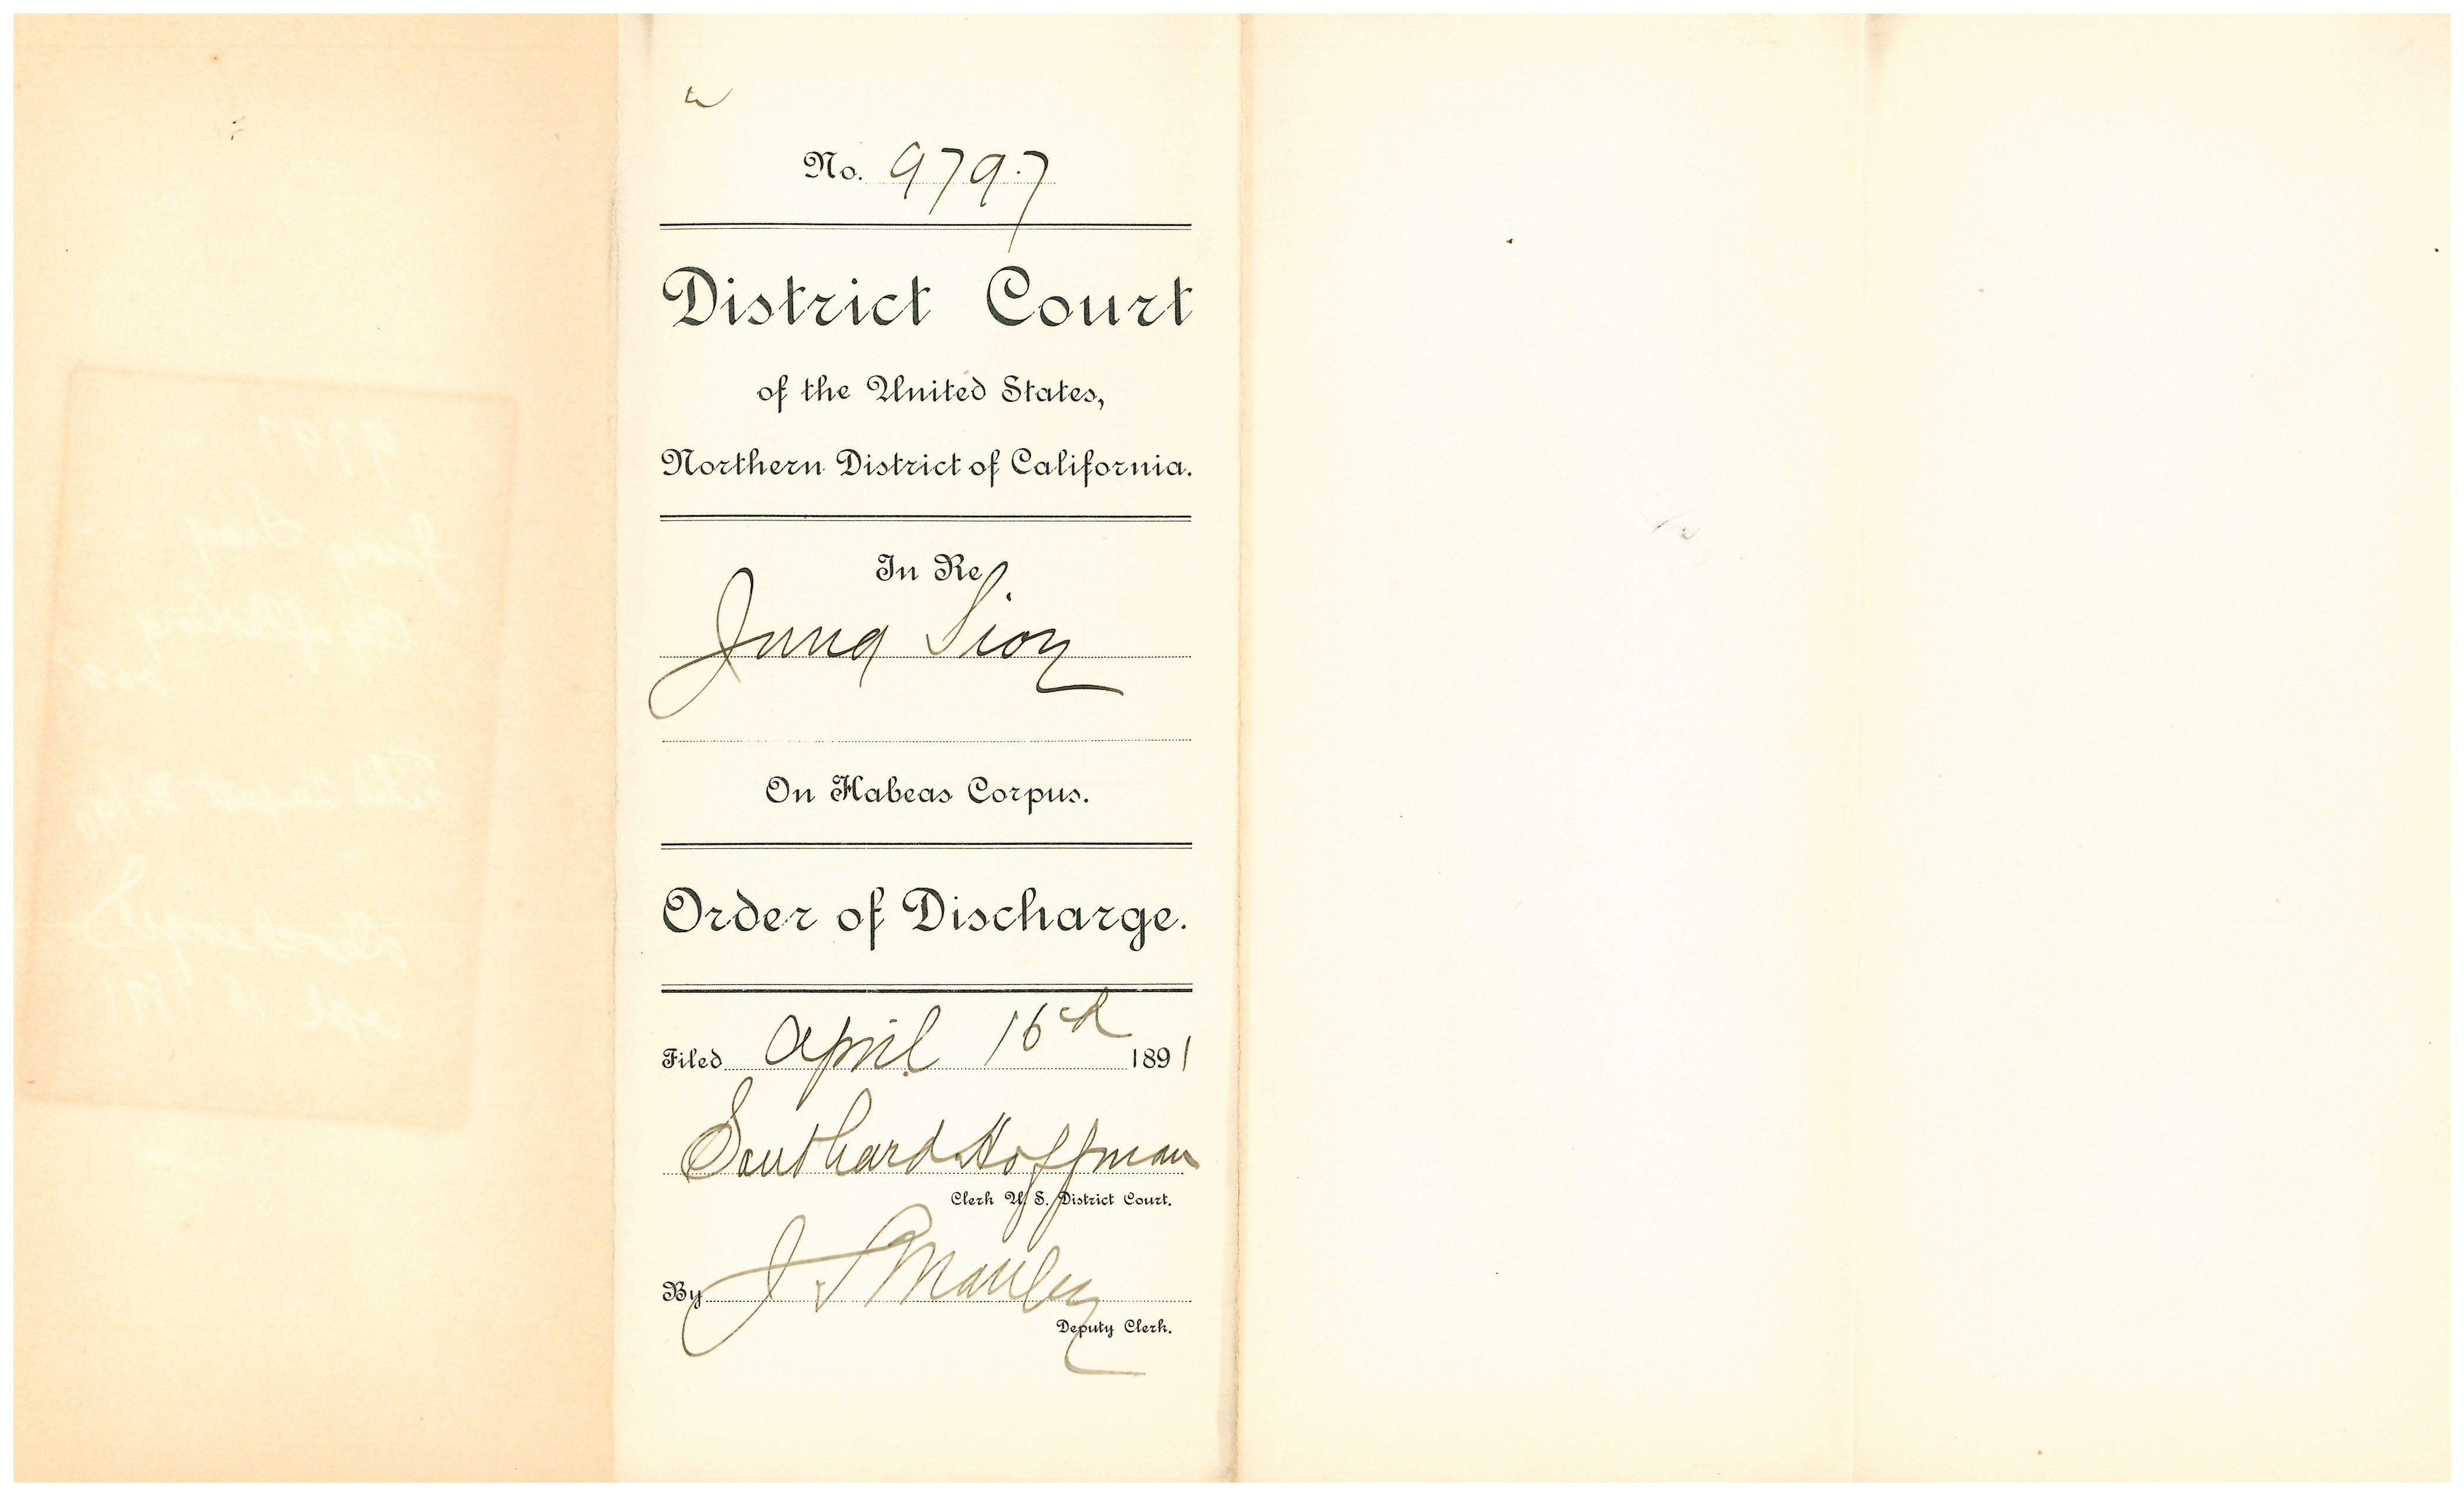 No. 9797
District Court
of the United States,
Northern District of California.
In Re
Jung Sioy
On Habeas Corpus.
Order of Discharge.
Filed April 16th 1891
Southard Hoffman
Clerk U. S. District Court.
By J. S. Manley
Deputy Clerk.
9797